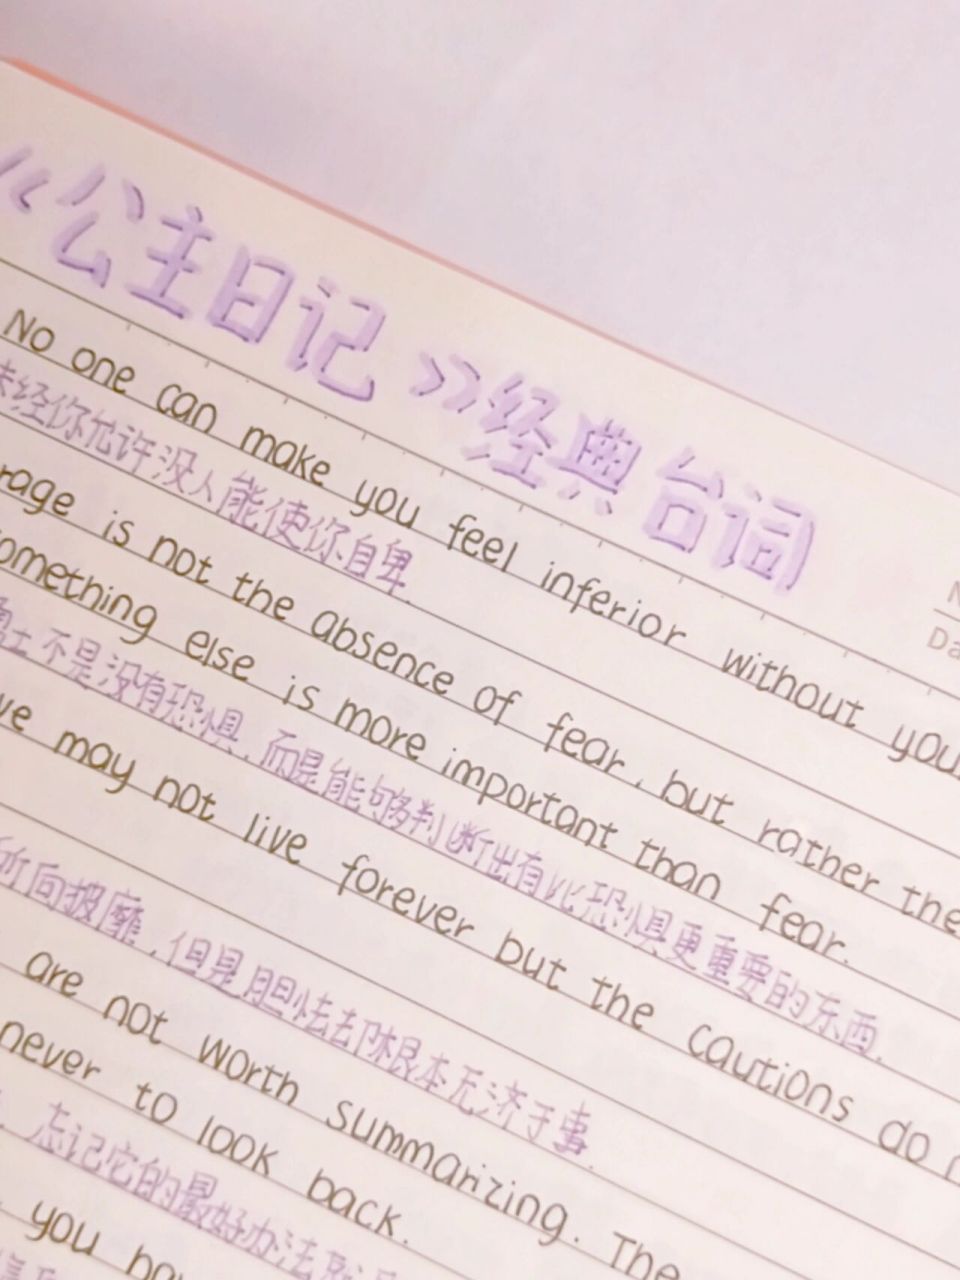 《公主日记》经典台词
No one can make you feel inferior without you
未经你允许没人能使你自卑.
rage is not the absence of fear, but rather the
omething else is more important than fear.
勇士不是没有恐惧,而是能够判断出有比恐惧更重要的东西.
ve may not live forever but the cautions do
所向披靡,但是胆怯却根本无济于事.
are not worth summarizing. The
never to look back.
忘记它的最好办法
you
Da